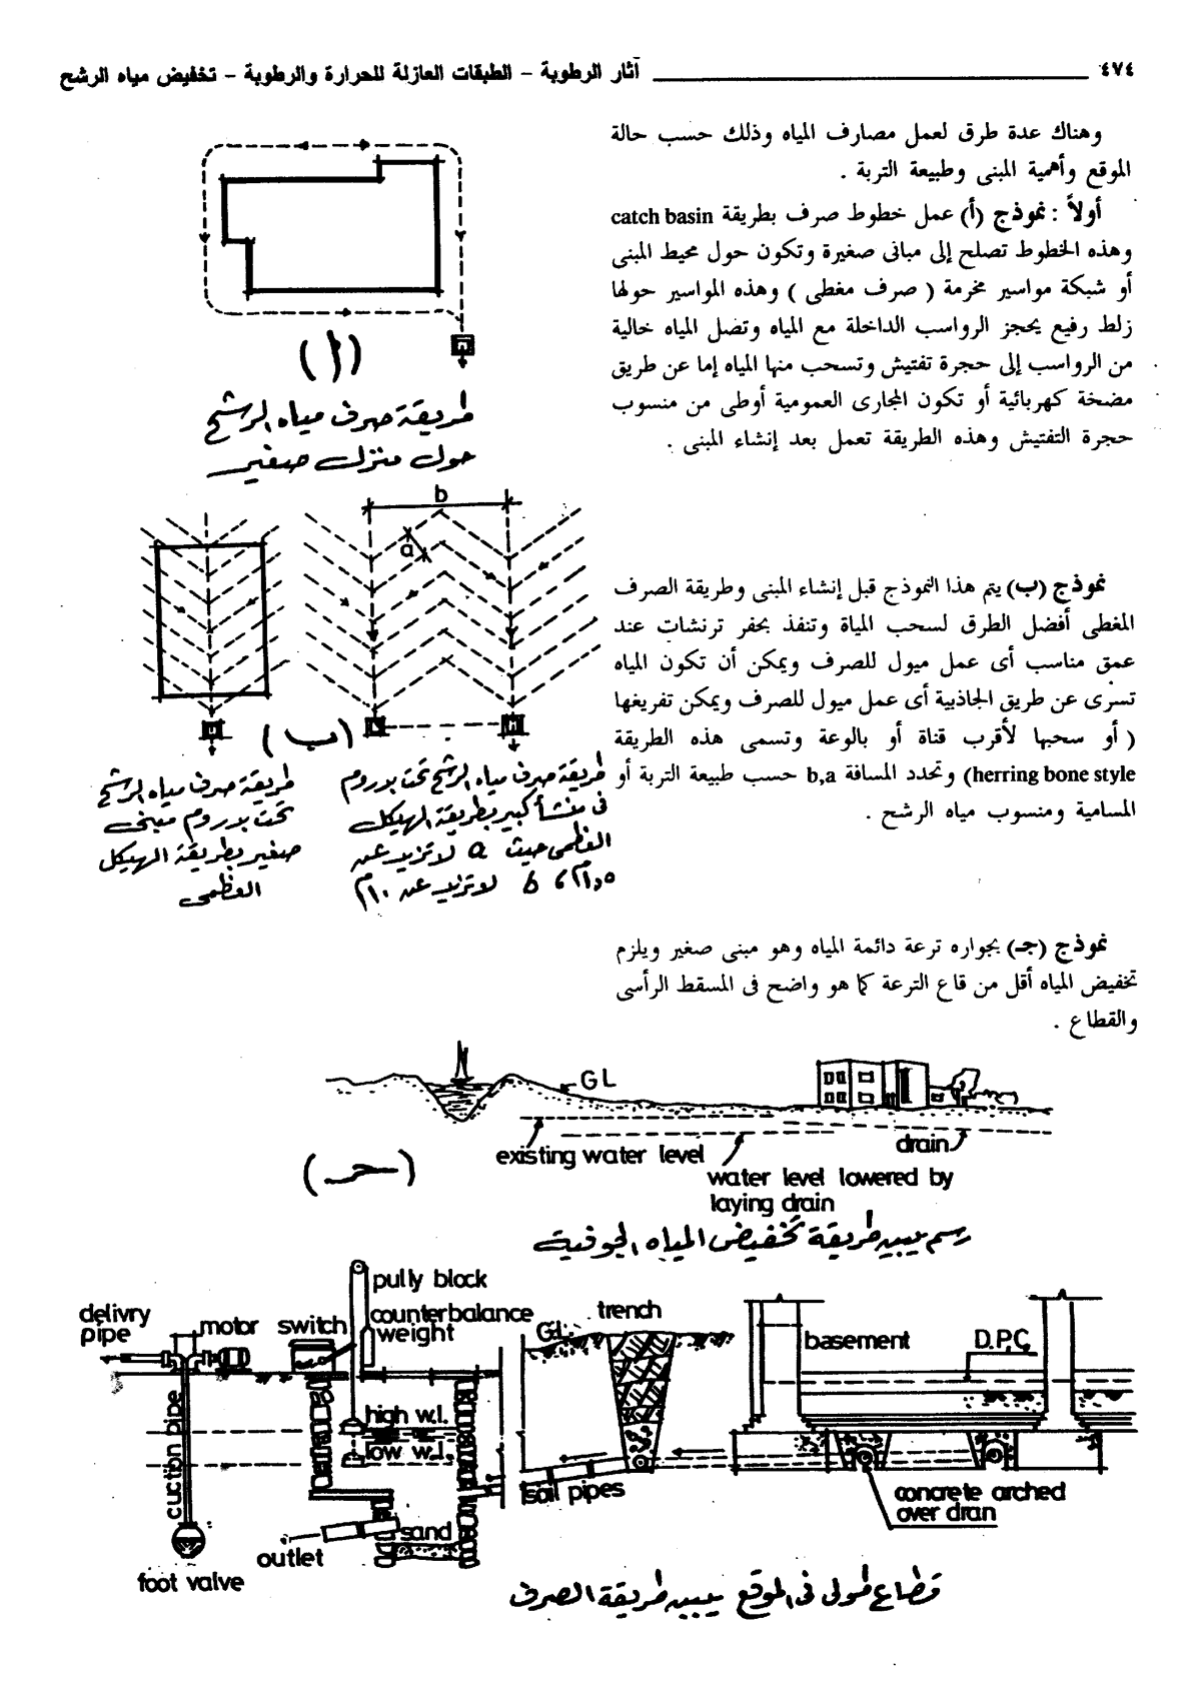 ٤٧٤
آثار الرطوبة – الطبقات العازلة للحرارة والرطوبة – تخفيض مياه الرشح
وهناك عدة طرق لعمل مصارف المياه وذلك حسب حالة
الموقع وأهمية المبنى وطبيعة التربة .
أولاً : نموذج (أ) عمل خطوط صرف بطريقة catch basin
وهذه الخطوط تصلح إلى مبانى صغيرة وتكون حول محيط المبنى
أو شبكة مواسير مخرمة ( صرف مغطى ) وهذه المواسير حولها
زلط رفيع يحجز الرواسب الداخلة مع المياه وتصل المياه خالية
من الرواسب إلى حجرة تفتيش وتسحب منها المياه إما عن طريق
مضخة كهربائية أو تكون المجارى العمومية أوطى من منسوب
حجرة التفتيش وهذه الطريقة تعمل بعد إنشاء المبنى .
(أ)
طريقة صرف مياه الرشح
حول منزل صغير
b
a
نموذج (ب) يتم هذا النموذج قبل إنشاء المبنى وطريقة الصرف
المغطى أفضل الطرق لسحب المياة وتنفذ بحفر ترنشات عند
عمق مناسب أى عمل ميول للصرف ويمكن أن تكون المياه
تسرى عن طريق الجاذبية أى عمل ميول للصرف ويمكن تفريغها
( أو سحبها لأقرب قناة أو بالوعة وتسمى هذه الطريقة
herring bone style) وتحدد المسافة b,a حسب طبيعة التربة أو
المسامية ومنسوب مياه الرشح .
(ب)
طريقة صرف مياه الرشح تحت بدروم
فى منشأ كبير بطريقة الهيكل
العظمى حيث a لا تزيد عن
٥ر١م ، b لا تزيد عن ١٠م
طريقة صرف مياه الرشح
تحت بدروم مبنى
صغير بطريقة الهيكل
العظمى
نموذج (جـ) بجواره ترعة دائمة المياه وهو مبنى صغير ويلزم
تخفيض المياه أقل من قاع الترعة كما هو واضح فى المسقط الرأسى
والقطاع .
GL
existing water level
drain
water level lowered by
laying drain
(جـ)
رسم يبين طريقة تخفيض المياه الجوفية
pully block
delivry
pipe
motor
switch
counterbalance
weight
G.L.
trench
basement
D.P.C,
cuction pipe
high w.l.
low w.l.
soil pipes
concrete arched
over dran
sand
outlet
foot valve
قطاع طولى فى الموقع يبين طريقة الصرف